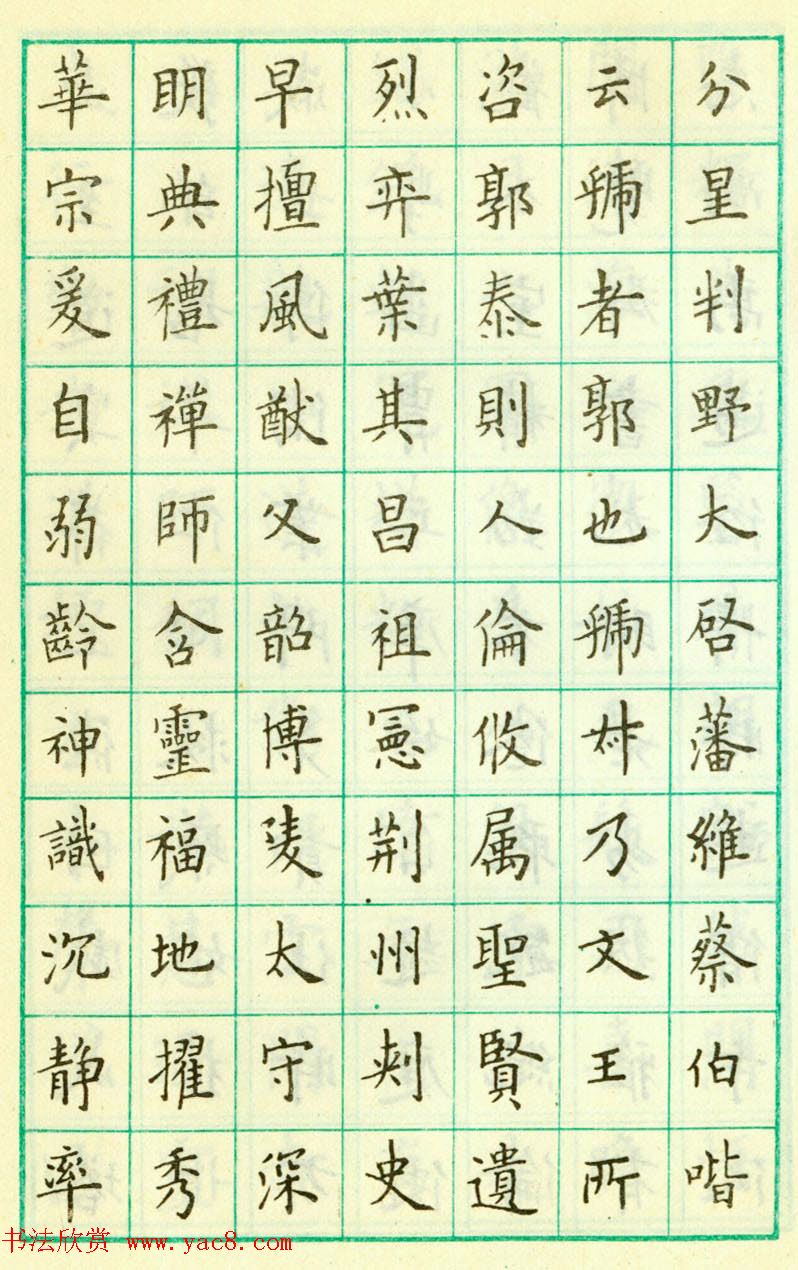 分星判野大啓藩維蔡伯喈
云虢者郭也虢叔乃文王所
咨郭泰則人倫攸属聖賢遺
烈弈葉其昌祖憲荆州刾史
早擅風猷父韶博陵太守深
眀典禮禪師含靈福地擢秀
華宗爰自弱齡神識沉静率
书法欣赏 www.yac8.com